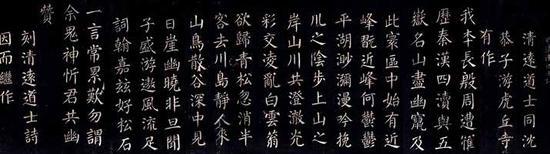 清遠道士同沈
恭子游虎丘寺
有作
我本長殷周遭罹
歷秦漢四瀆與五
嶽名山盡幽竄及
此寰區中始有近
峰翫近峰何鬱鬱
平湖渺瀰漫吟挽
川之陰步上山之
岸山川共澄澈光
彩交淩亂白雲蓊
欲歸青松忽消半
客去川島靜人來
山鳥散谷深中見
日崖幽曉非旦聞
子盛游遨風流足
詞翰嘉茲好松石
一言常累歎勿謂
余鬼神忻君共幽
贊
刻清遠道士詩
因而繼作